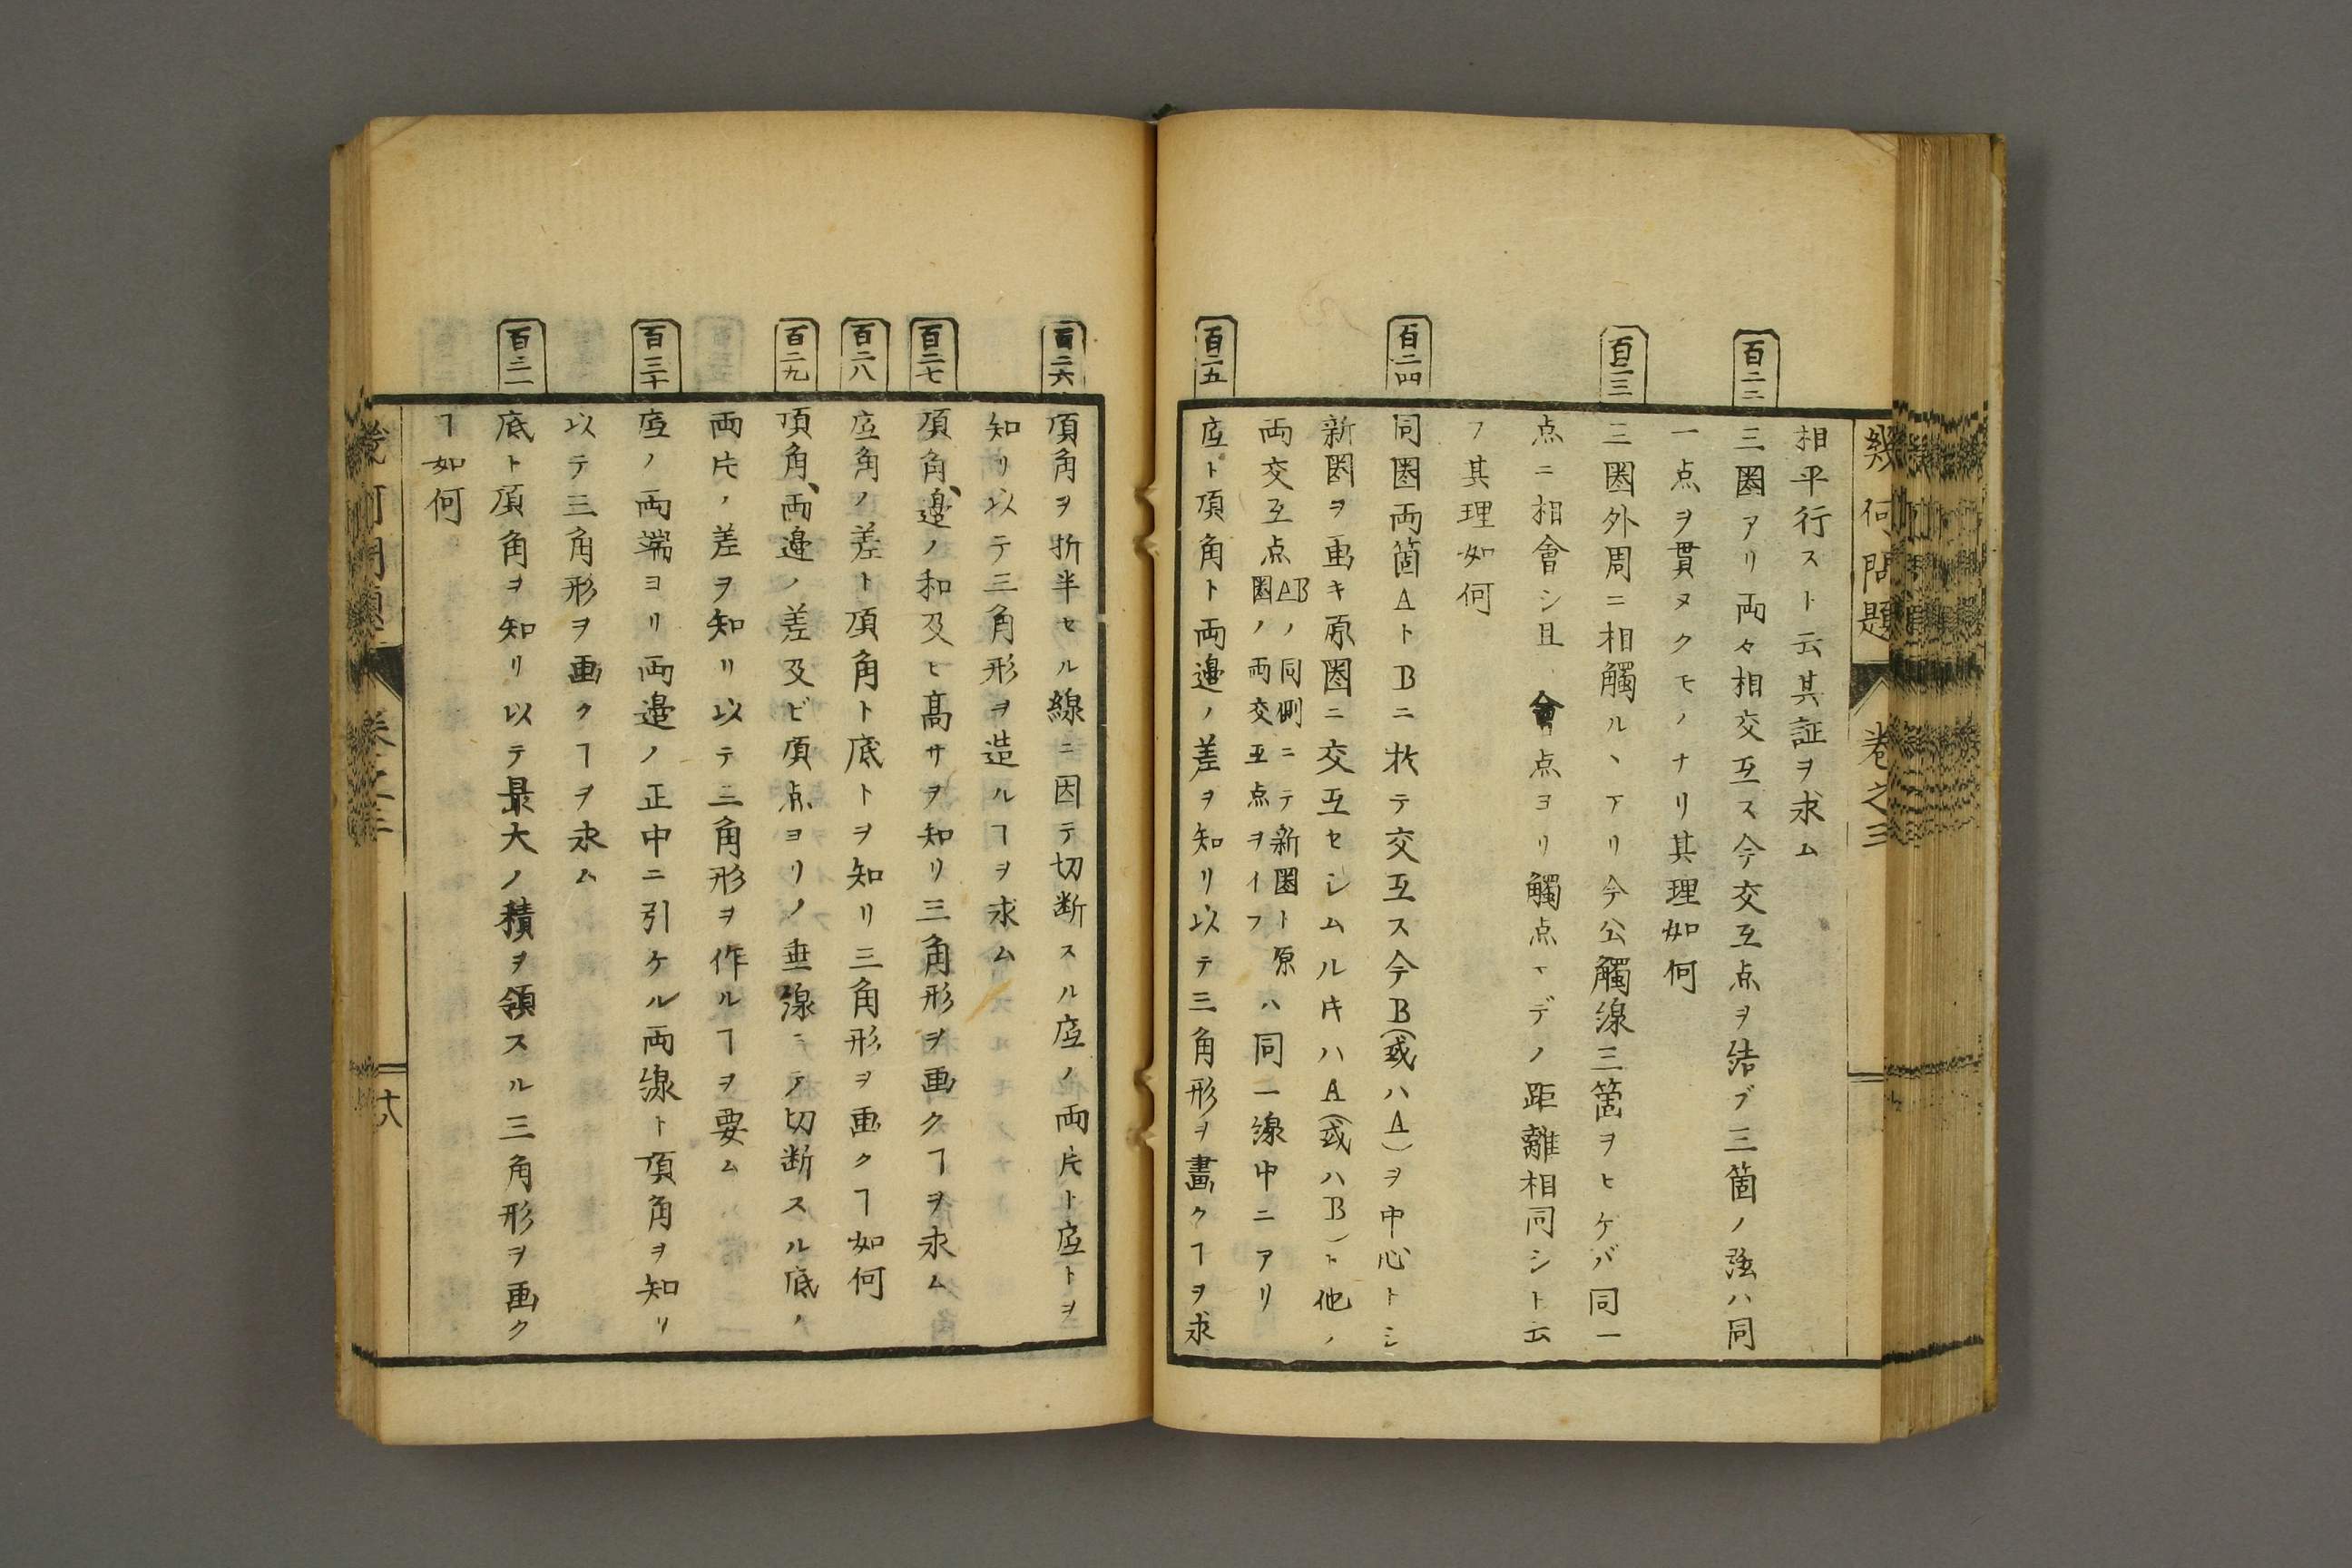 幾何問題
巻之三
相平行スト云其証ヲ求ム
百二二
三圏アリ両々相交互ス今交互点ヲ結ブ三箇ノ強ハ同
一点ヲ貫ヌクモノナリ其理如何
百二三
三圏外周ニ相觸ルヽアリ今公觸線三箇ヲヒケバ同一
点ニ相會シ且會点ヨリ觸点マデノ距離相同シト云
フ其理如何
百二四
同圏両箇AトBニ於テ交互ス今B(或ハA)ヲ中心トシ
新圏ヲ画キ原圏ニ交互セシムル𪜈ハA(或ハB)ト他ノ
両交互点ABノ同側ニテ新圏ト原圏ノ両交互点ヲイフハ同一線中ニアリ
百二五
底ト頂角ト両邉ノ差ヲ知リ以テ三角形ヲ畫クヿヲ求
百二六
頂角ヲ折半セル線ニ因テ切断スル底ノ両片ト底トヲ
知リ以テ三角形ヲ造ルヿヲ求ム
百二七
頂角、邉ノ和及ヒ高サヲ知リ三角形ヲ画クヿヲ求ム
百二八
底角ノ差ト頂角ト底トヲ知リ三角形ヲ画クヿ如何
百二九
頂角、両邉ノ差及ビ頂点ヨリノ垂線ニテ切断スル底ノ
両片ノ差ヲ知リ以テ三角形ヲ作ルヿヲ要ム
百三十
底ノ両端ヨリ両邉ノ正中ニ引ケル両線ト頂角ヲ知リ
以テ三角形ヲ画クヿヲ求ム
百三一
底ト頂角ヲ知リ以テ最大ノ積ヲ領スル三角形ヲ画ク
ヿ如何
幾何問題
巻之三
十八